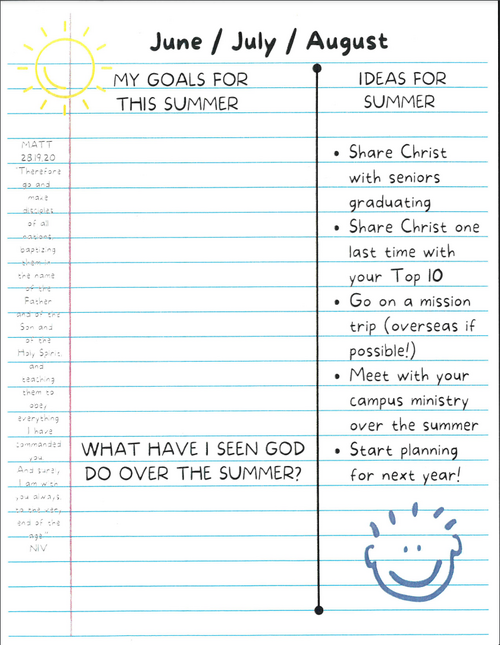 June / July / August
MY GOALS FOR
THIS SUMMER
WHAT HAVE I SEEN GOD
DO OVER THE SUMMER?
IDEAS FOR
SUMMER
• Share Christ
with seniors
graduating
• Share Christ one
last time with
your Top 10
• Go on a mission
trip (overseas if
possible!)
• Meet with your
campus ministry
over the summer
• Start planning
for next year!
MATT
28:19,20
"Therefore
go and
make
disciples
of all
nations,
baptizing
them in
the name
of the
Father
and of the
Son and
of the
Holy Spirit,
and
teaching
them to
obey
everything
I have
commanded
you.
And surely
I am with
you always,
to the very
end of the
age."
NIV